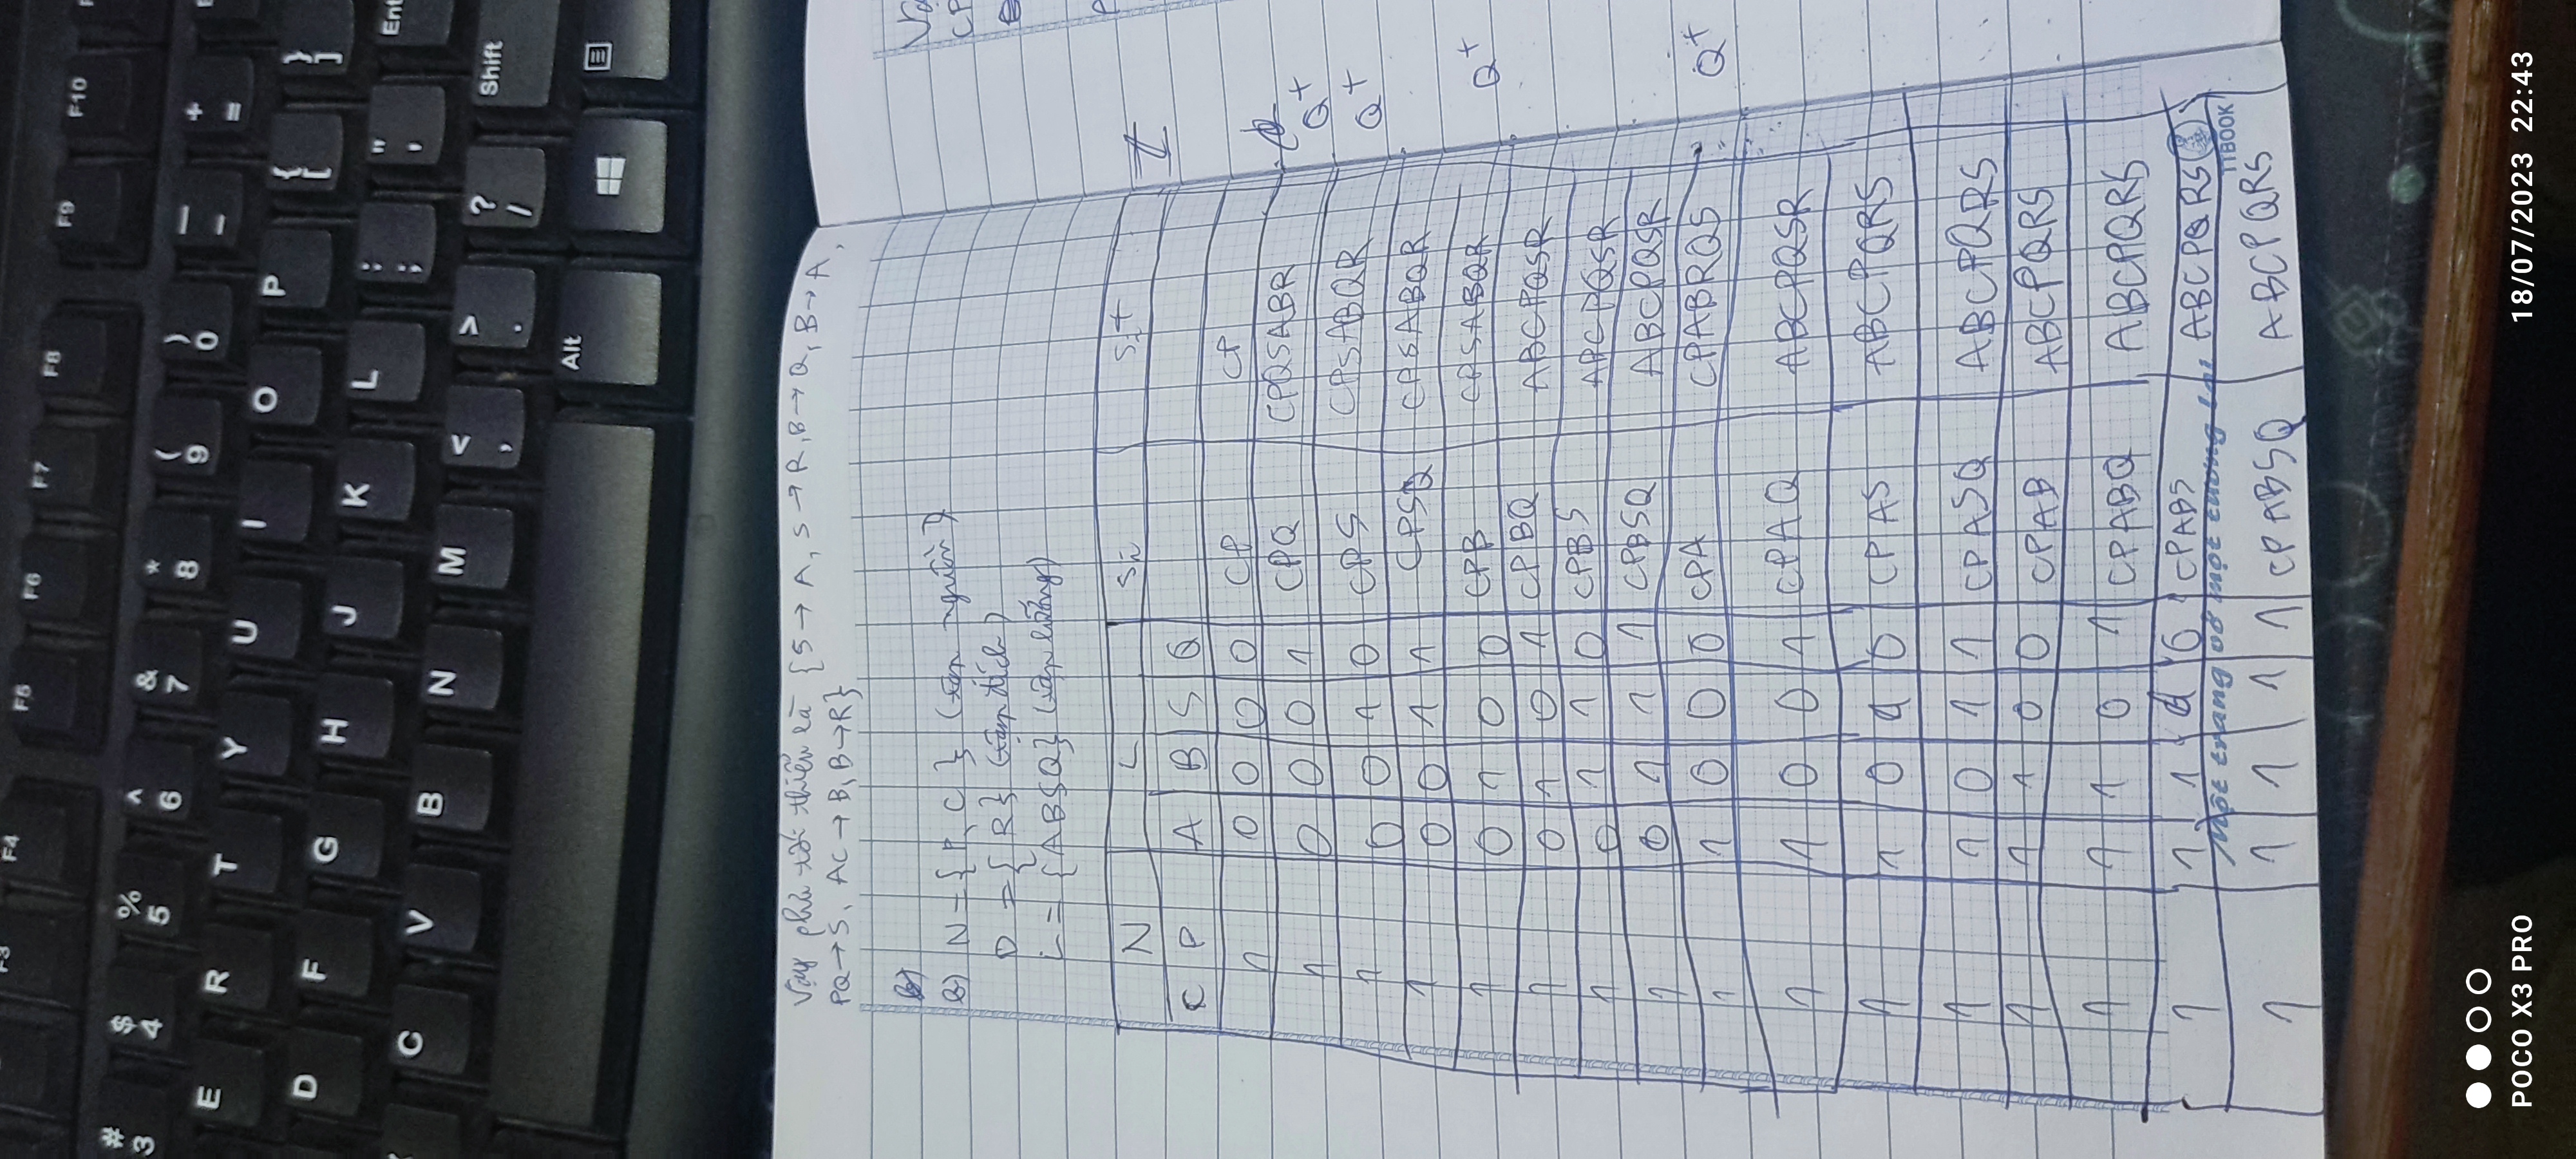 F3 F4 F5 F6 F7 F8 F9 F10
# $ % ^ & * ( ) — +
3 4 5 6 7 8 9 0 - =
E R T Y U I O P { }
[ ]
D F G H J K L : " Ent
; '
C V B N M < > ? Shift
, . /
Alt
Vậy phủ tối thiểu là {S → A, S → R, B → Q, B → A,
PQ → S, AC → B, B → R}
b)
b) N = {P, C} (tập nguồn)
D = {R} (tập đích)
L = {ABSQ} (tập lưỡng)
N L Si Si+
C P A B S Q
1 0 0 0 0 CP CP
1 0 0 0 1 CPQ CPQSABR Q+
1 0 0 1 0 CPS CPSABQR Q+
1 0 0 1 1 CPSQ CPSABQR
1 0 1 0 0 CPB CPSABQR Q+
1 0 1 0 1 CPBQ ABCPQSR
1 0 1 1 0 CPBS ABCPQSR
1 0 1 1 1 CPBSQ ABCPQSR
1 1 0 0 0 CPA CPABRQS Q+
1 1 0 0 1 CPAQ ABCPQSR
1 1 0 1 0 CPAS ABCPQRS
1 1 0 1 1 CPASQ ABCPQRS
1 1 1 0 0 CPAB ABCPQRS
1 1 1 0 1 CPABQ ABCPQRS
1 1 1 1 0 CPABS ABCPQRS
Một trang vở một tương lai
TTBOOK
1 1 1 1 1 CPABSQ ABCPQRS
CP
POCO X3 PRO 18/07/2023 22:43